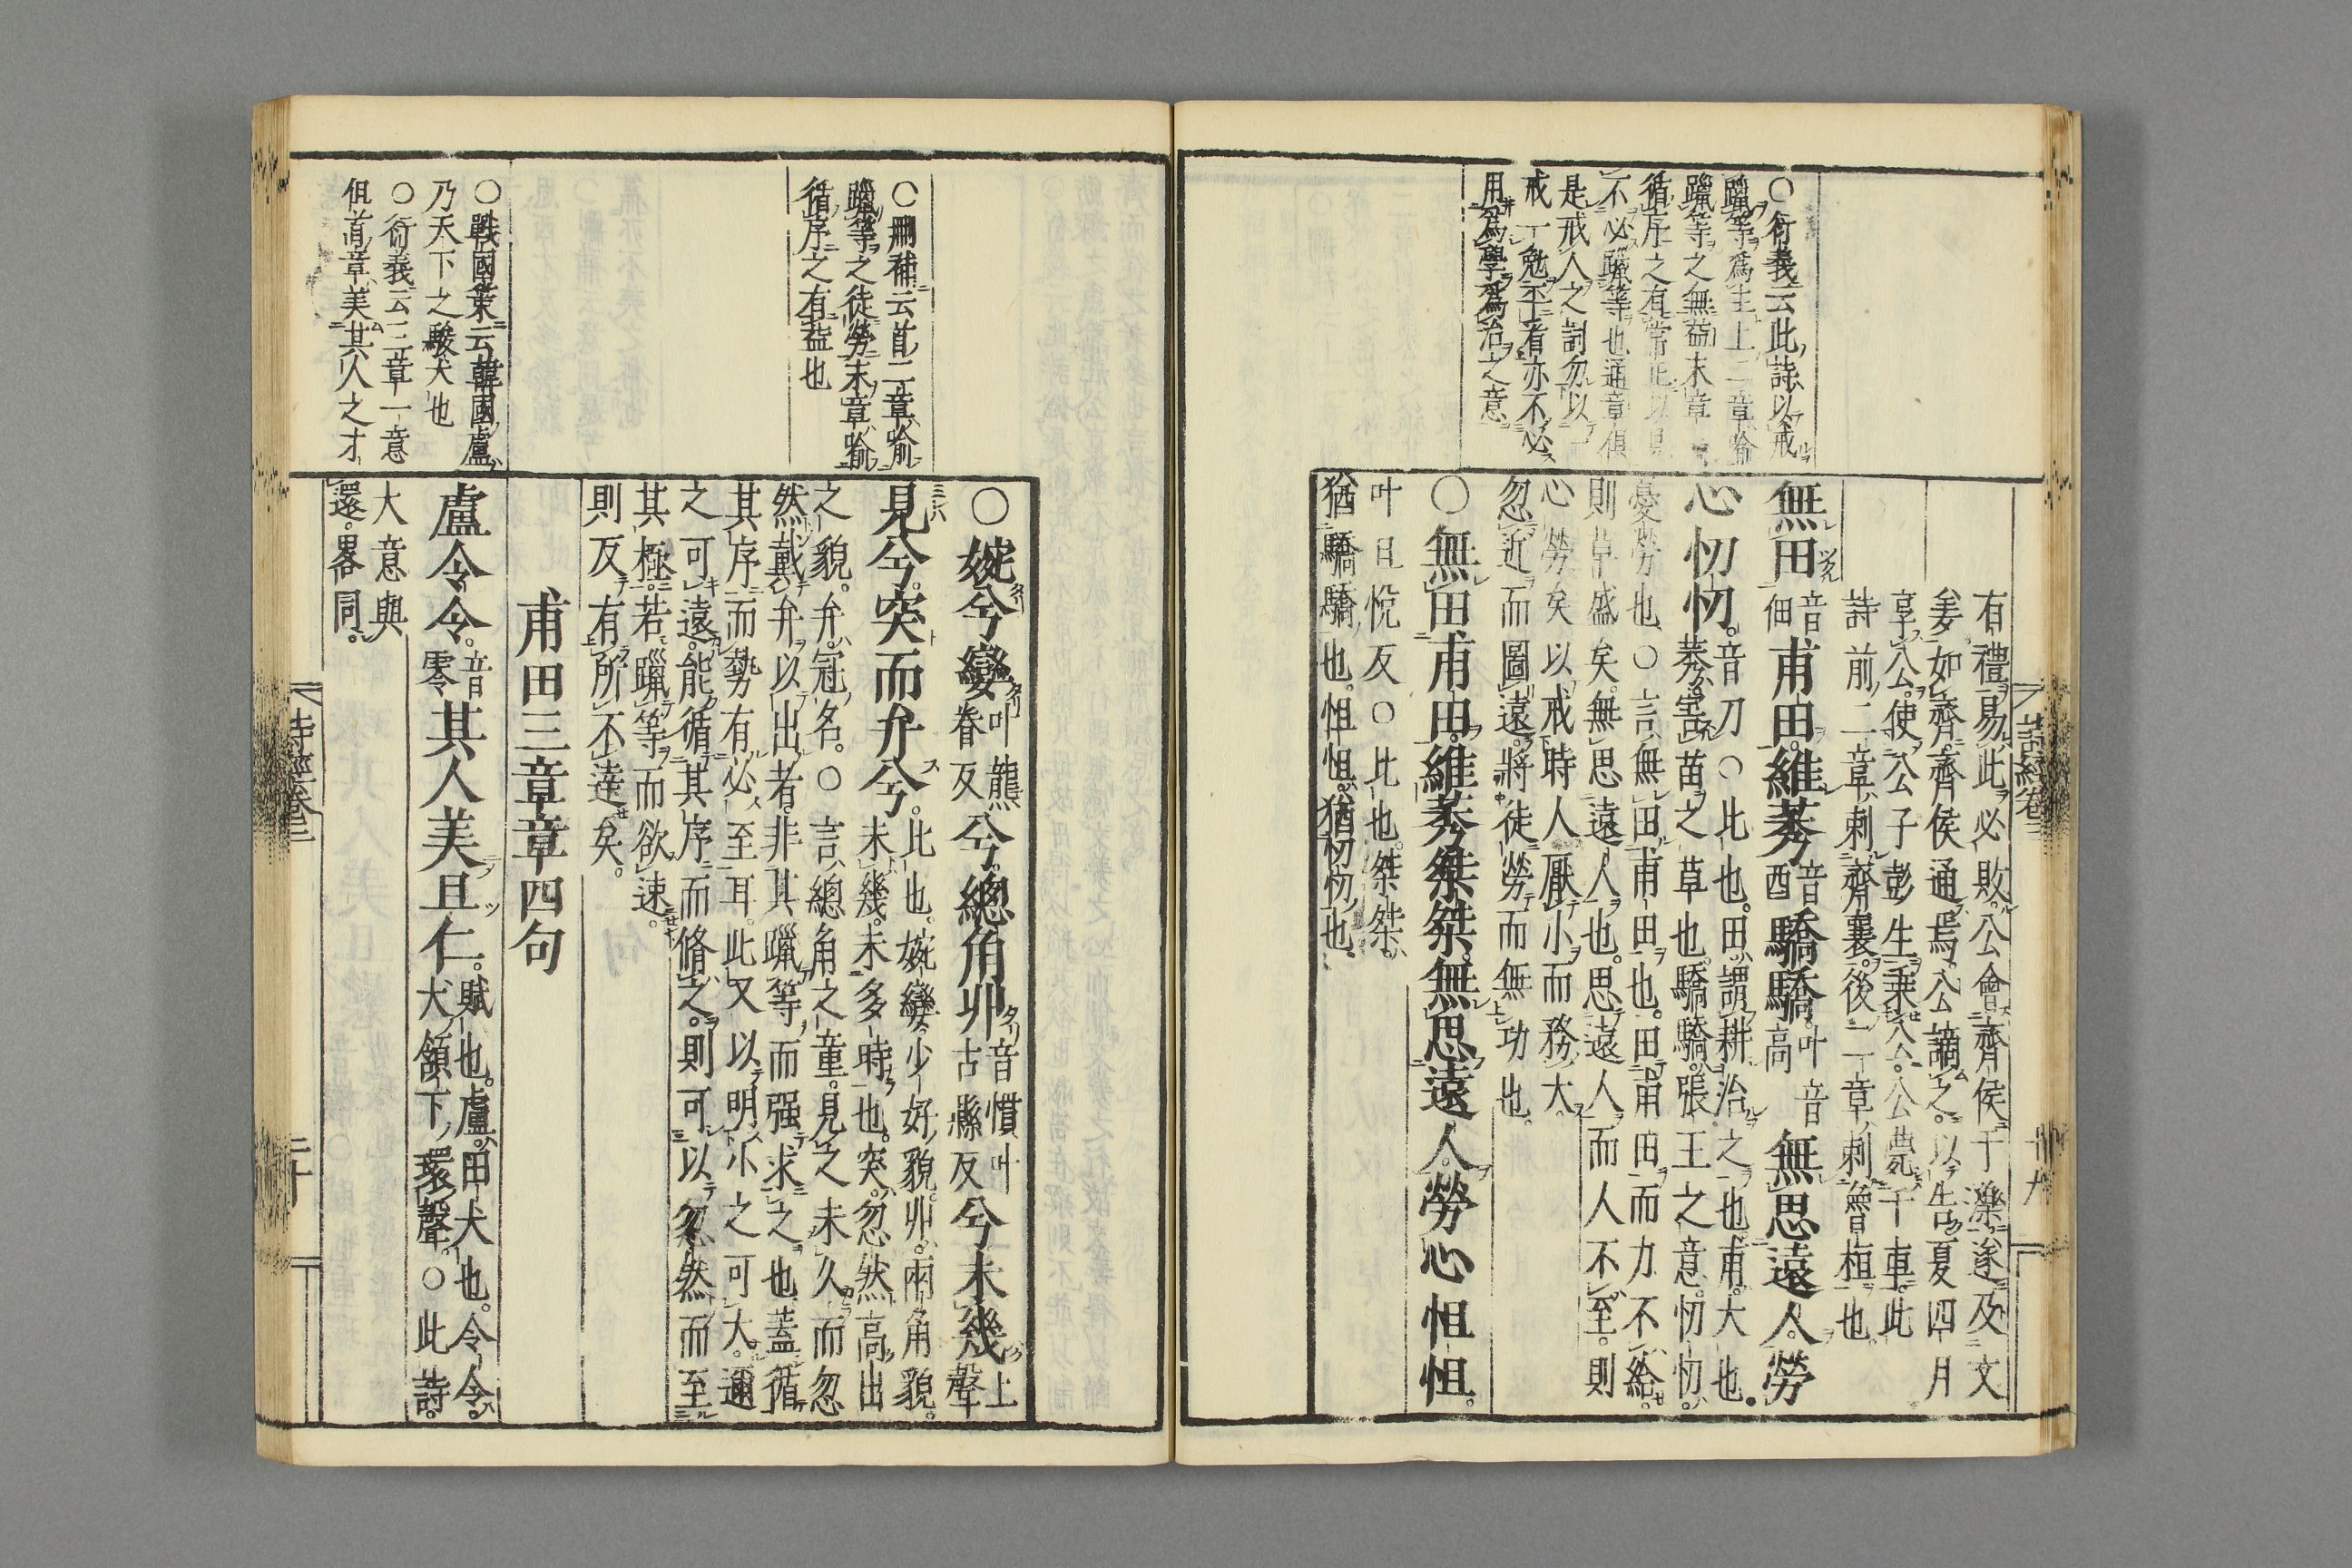 詩經卷三
十九
○衍義云此詩以戒
躐等爲主上二章喻
躐等之無益末章
循序之有常正以見
不必躐等也通章俱
是戒人之詞勿以一
戒一勉平看亦不必
用爲學爲治之意
有禮易此必敗公會齊侯于濼遂及文
姜如齊齊侯通焉公謫之以告夏四月
享公使公子彭生乘公公薨于車此
詩前二章刺齊襄後一章刺魯桓也
無田音佃甫田維莠音酉驕驕叶音高無思遠人勞
心忉忉音刀○比也田謂耕治之也甫大也
莠害苗之草也驕驕張王之意忉忉
憂勞也○言無田甫田也田甫田而力不給
則草盛矣無思遠人也思遠人而人不至則
心勞矣以戒時人厭小而務大
忽近而圖遠將徒勞而無功也
○無田甫田維莠桀桀無思遠人勞心怛怛
叶旦悅反○比也桀桀
猶驕驕也怛怛猶忉忉也
○刪補云首二章喻
躐等之徒勞末章喻
循序之有益也
○婉兮孌叶龍眷反兮總角丱音慣叶古縣反兮未幾上聲
見兮突而弁兮比也婉孌少好貌丱兩角貌
未幾未多時也突忽然高出
之貌弁冠名○言總角之童見之未久而忽
然戴弁以出者非其躐等而强求之也蓋循
其序而勢有必至耳此又以明小之可大邇
之可遠能循其序而脩之則可以忽然而至
其極若躐等而欲速
則反有所不達矣
甫田三章章四句
○戰國策云韓國盧
乃天下之駿犬也
○衍義云三章一意
俱首章美其人之才
盧令令音零其人美且仁賦也盧田犬也令令
犬頷下環聲○此詩
大意與
還畧同
詩經卷三
二十